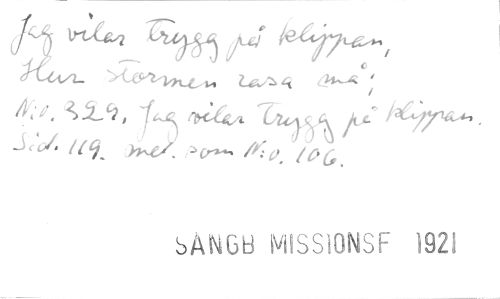 Jag vilar trygg på klippan,
Hur stormen rasa må;
N:o. 329. Jag vilar trygg på klippan.
Sid. 119. mel. som N:o. 106.
SÅNGB MISSIONSF 1921